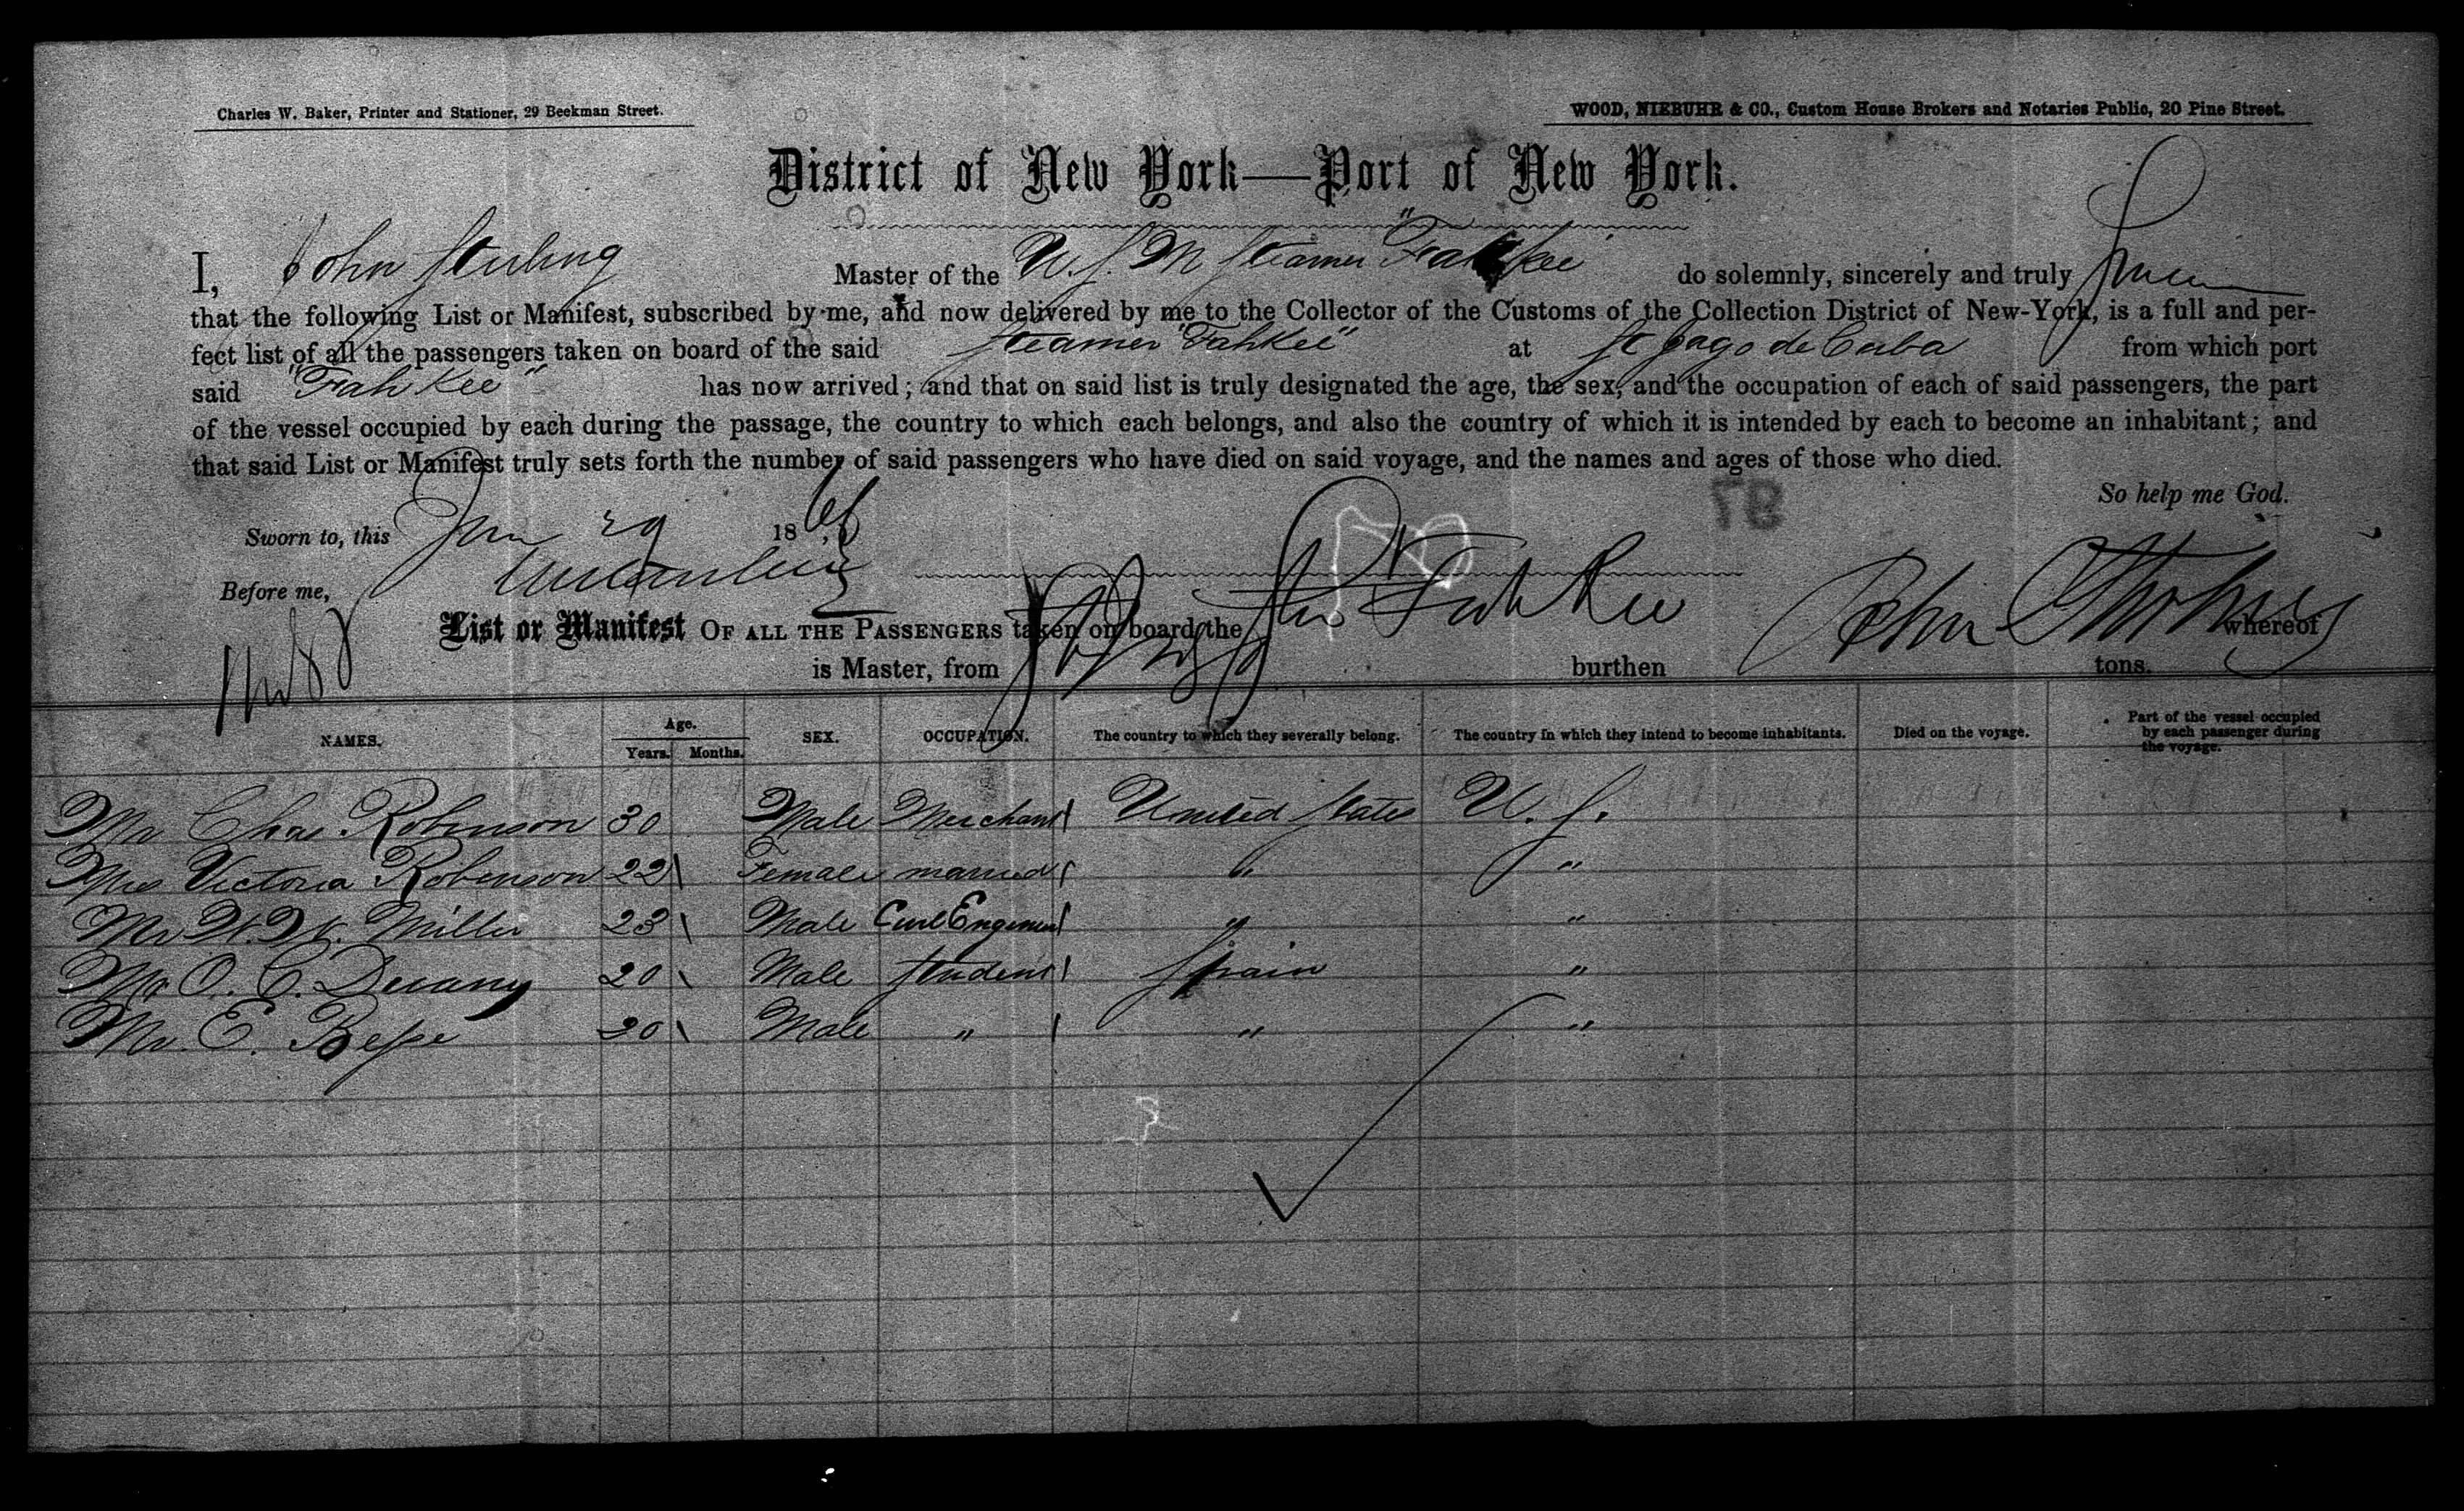 Charles W. Baker, Printer and Stationer, 29 Beekman Street.
WOOD, NIEBUHR & CO., Custom House Brokers and Notaries Public, 20 Pine Street.
District of New York—Port of New York.
I, John Sterling Master of the U. S. M Steamer "Fahkee" do solemnly, sincerely and truly swear
that the following List or Manifest, subscribed by me, and now delivered by me to the Collector of the Customs of the Collection District of New-York, is a full and per-
fect list of all the passengers taken on board of the said Steamer "Fahkee" at St Jago de Cuba from which port
said "Fah Kee" has now arrived; and that on said list is truly designated the age, the sex, and the occupation of each of said passengers, the part
of the vessel occupied by each during the passage, the country to which each belongs, and also the country of which it is intended by each to become an inhabitant; and
that said List or Manifest truly sets forth the number of said passengers who have died on said voyage, and the names and ages of those who died.
So help me God.
Sworn to, this Jan 29 18
Before me,
List or Manifest OF ALL THE PASSENGERS taken on board the Fah Kee whereof
is Master, from burthen tons.
NAMES. Age. Years. Months. SEX. OCCUPATION. The country to which they severally belong. The country in which they intend to become inhabitants. Died on the voyage. Part of the vessel occupied by each passenger during the voyage.
Mr Chas Robinson 30 Male Merchant United States U. S.
Mrs Victoria Robinson 22 Female married " "
Mr Miller 23 Male Civil Engineer " "
Mr O. C. 20 Male Student Spain "
Mr. E. Besse 20 Male " " "